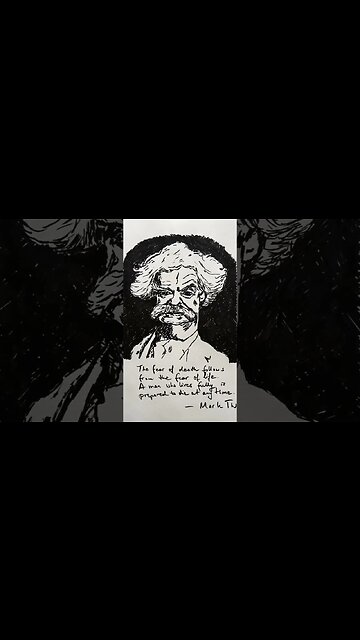 The fear of death follows
from the fear of life.
A man who lives fully is
prepared to die at any time.
— Mark Tw